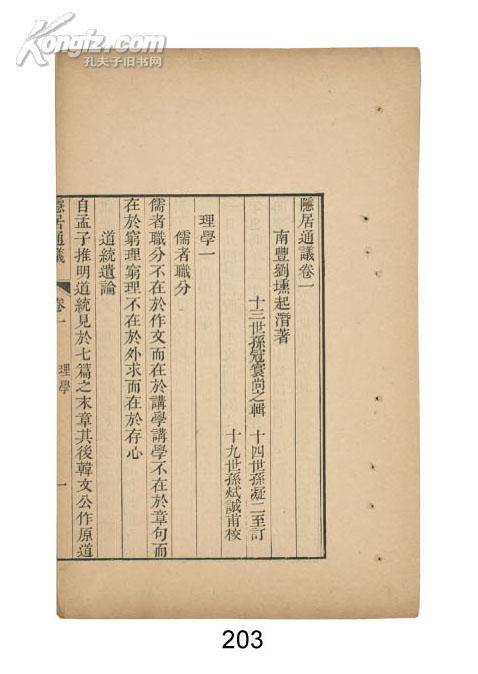 Kongfz.com
孔夫子旧书网
隱居通議卷一
南豐劉壎起潛著
十三世孫冠寰尚之輯 十四世孫凝二至訂
十九世孫斌誠甫校
理學一
儒者職分
儒者職分不在於作文而在於講學講學不在於章句而
在於窮理窮理不在於外求而在於存心
道統遺論
自孟子推明道統見於七篇之末章其後韓文公作原道
隱居通議 卷一 理學 一
203